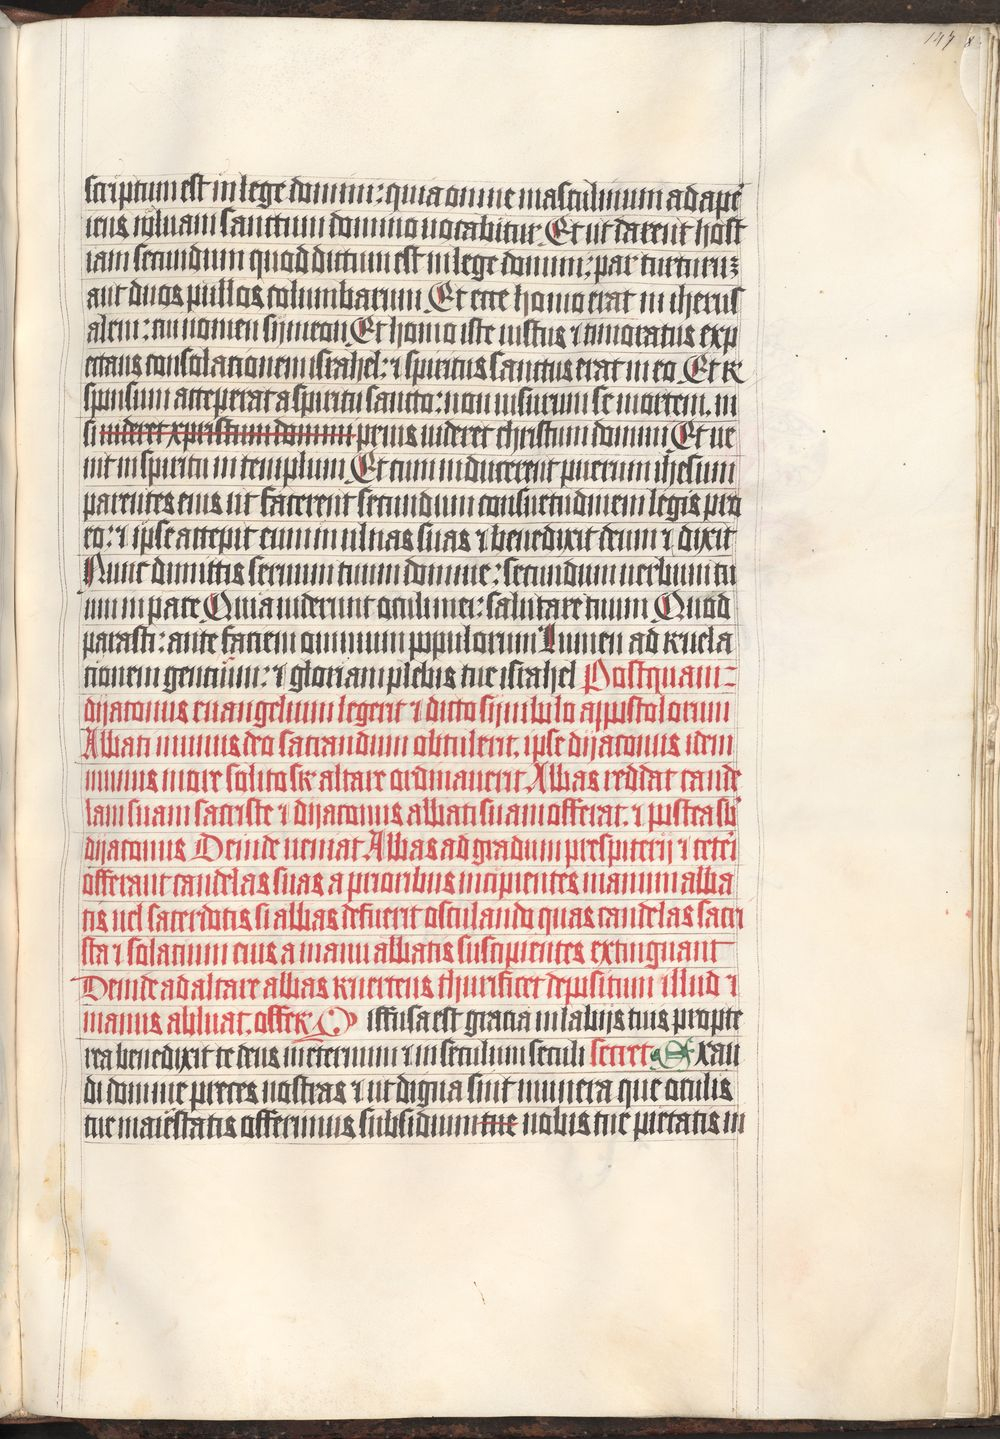 147
scriptum est in lege domini: quia omne masculinum adape
riens vuluam sanctum domino uocabitur Et ut darent host
iam secundum quod dictum est in lege domini: par turturuz
aut duos pullos columbarum Et ecce homo erat in iherus
alem: cui nomen symeon Et homo iste iustus ⁊ timoratus exp
ectans consolationem israhel: ⁊ spiritus sanctus erat in eo Et re
sponsum acceperat a spiritu sancto: non uisurum se mortem. ni
si uideret xpristum domini prius uideret christum domini Et ue
nit in spiritu in templum Et cum inducerent puerum ihesum
parentes eius ut facerent secundum consuetudinem legis pro
eo: ⁊ ipse accepit eum in ulnas suas ⁊ benedixit deum ⁊ dixit
Nunc dimittis seruum tuum domine: secundum uerbum tu
um in pace Quia uiderunt oculi mei: salutare tuum Quod
parasti: ante faciem omnium populorum Lumen ad reuela
tionem gentium: ⁊ gloriam plebis tue israhel Postquam
dyaconus euangelium legerit ⁊ dicto symbolo appostolorum
Abbati munus deo sacrandum obtulerit. ipse dyaconus idem
munus more solito sr altare ordinauerit Abbas reddat cande
lam suam sacriste ⁊ dyaconus abbati suam offerat. ⁊ postea sb
dyaconus Deinde ueniat Abbas ad gradum prespiterij ⁊ ceteri
offerant candelas suas a prioribus incipientes manum abba
tis uel sacerdotis si abbas defuerit osculando quas candelas sacri
sta ⁊ solatium eius a manu abbatis suscipientes extinguant
Deinde ad altare abbas reuertens thurificet depositum illud ⁊
manus abluat. offer D iffusa est gracia in labijs tuis propte
rea benedixit te deus in eternum ⁊ in seculum seculi secret E xau
di domine preces nostras ⁊ ut digna sint munera que oculis
tue maiestatis offerimus subsidium tue nobis tue pietatis in